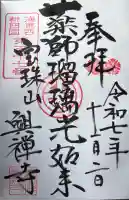 奉拝
令和七年
十一月二日
薬師瑠璃光如来
宝珠山
興禅寺